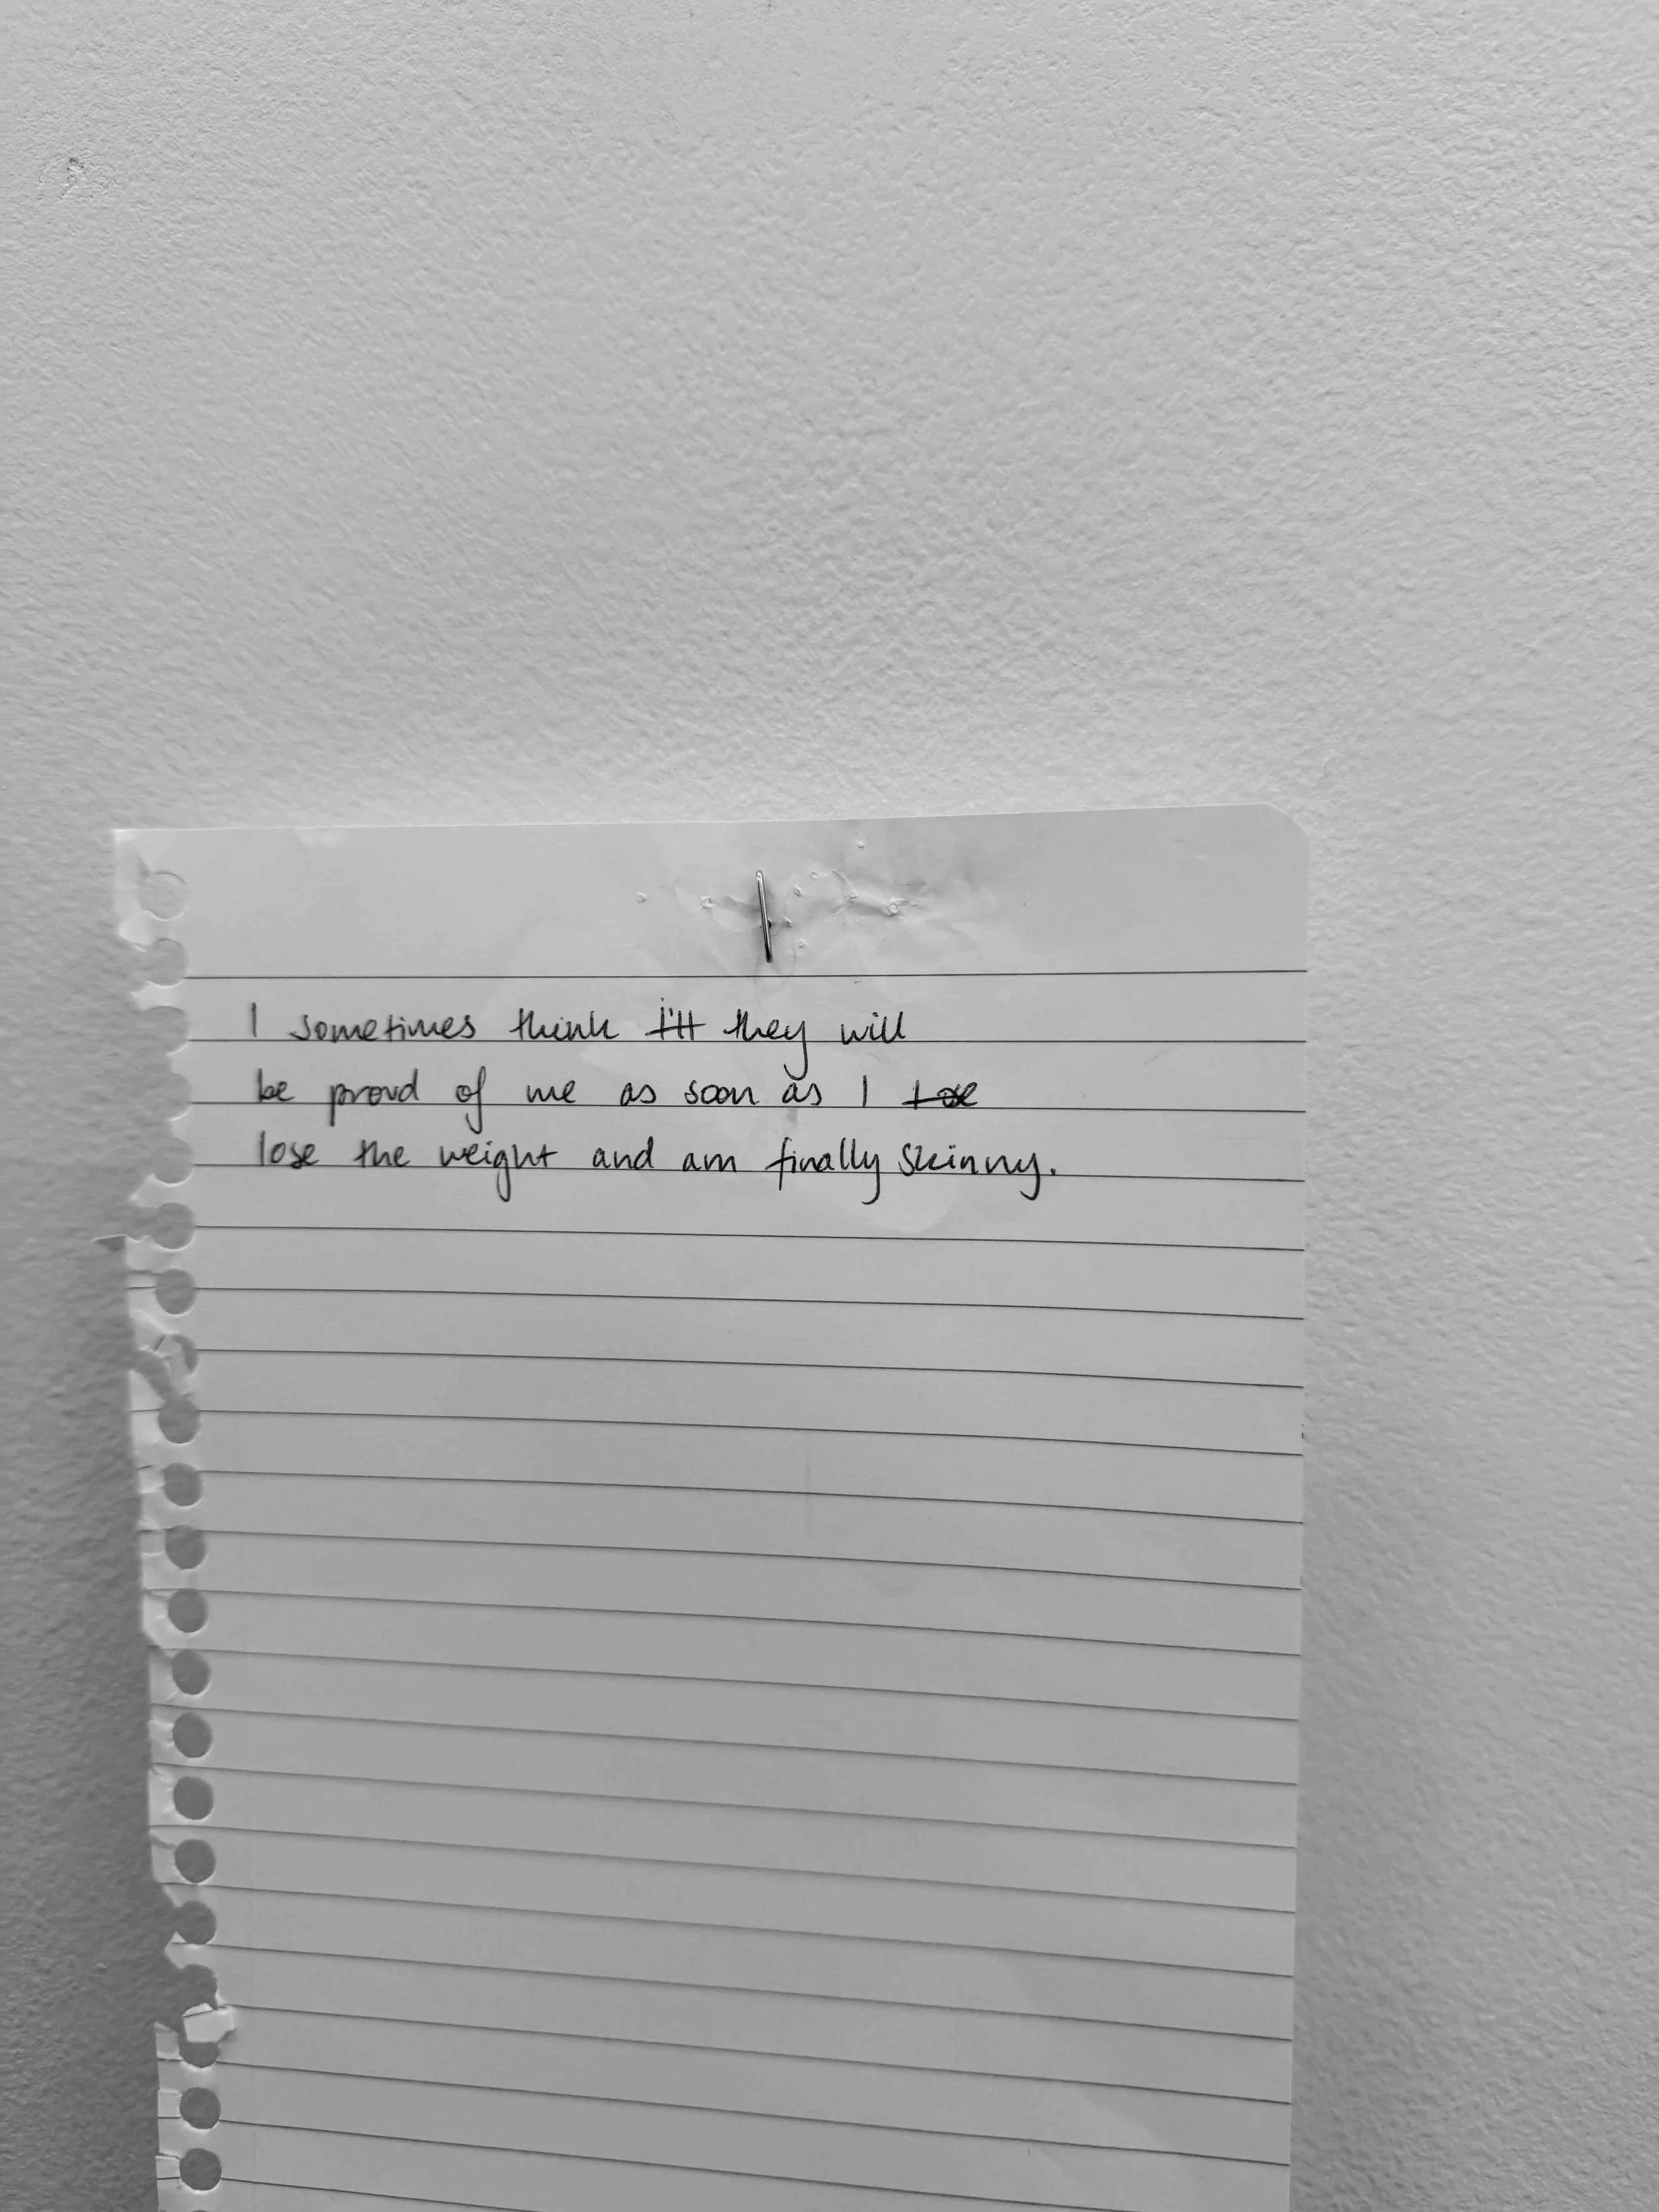 I sometimes think I'll they will
be proud of me as soon as I lose
lose the weight and am finally skinny.